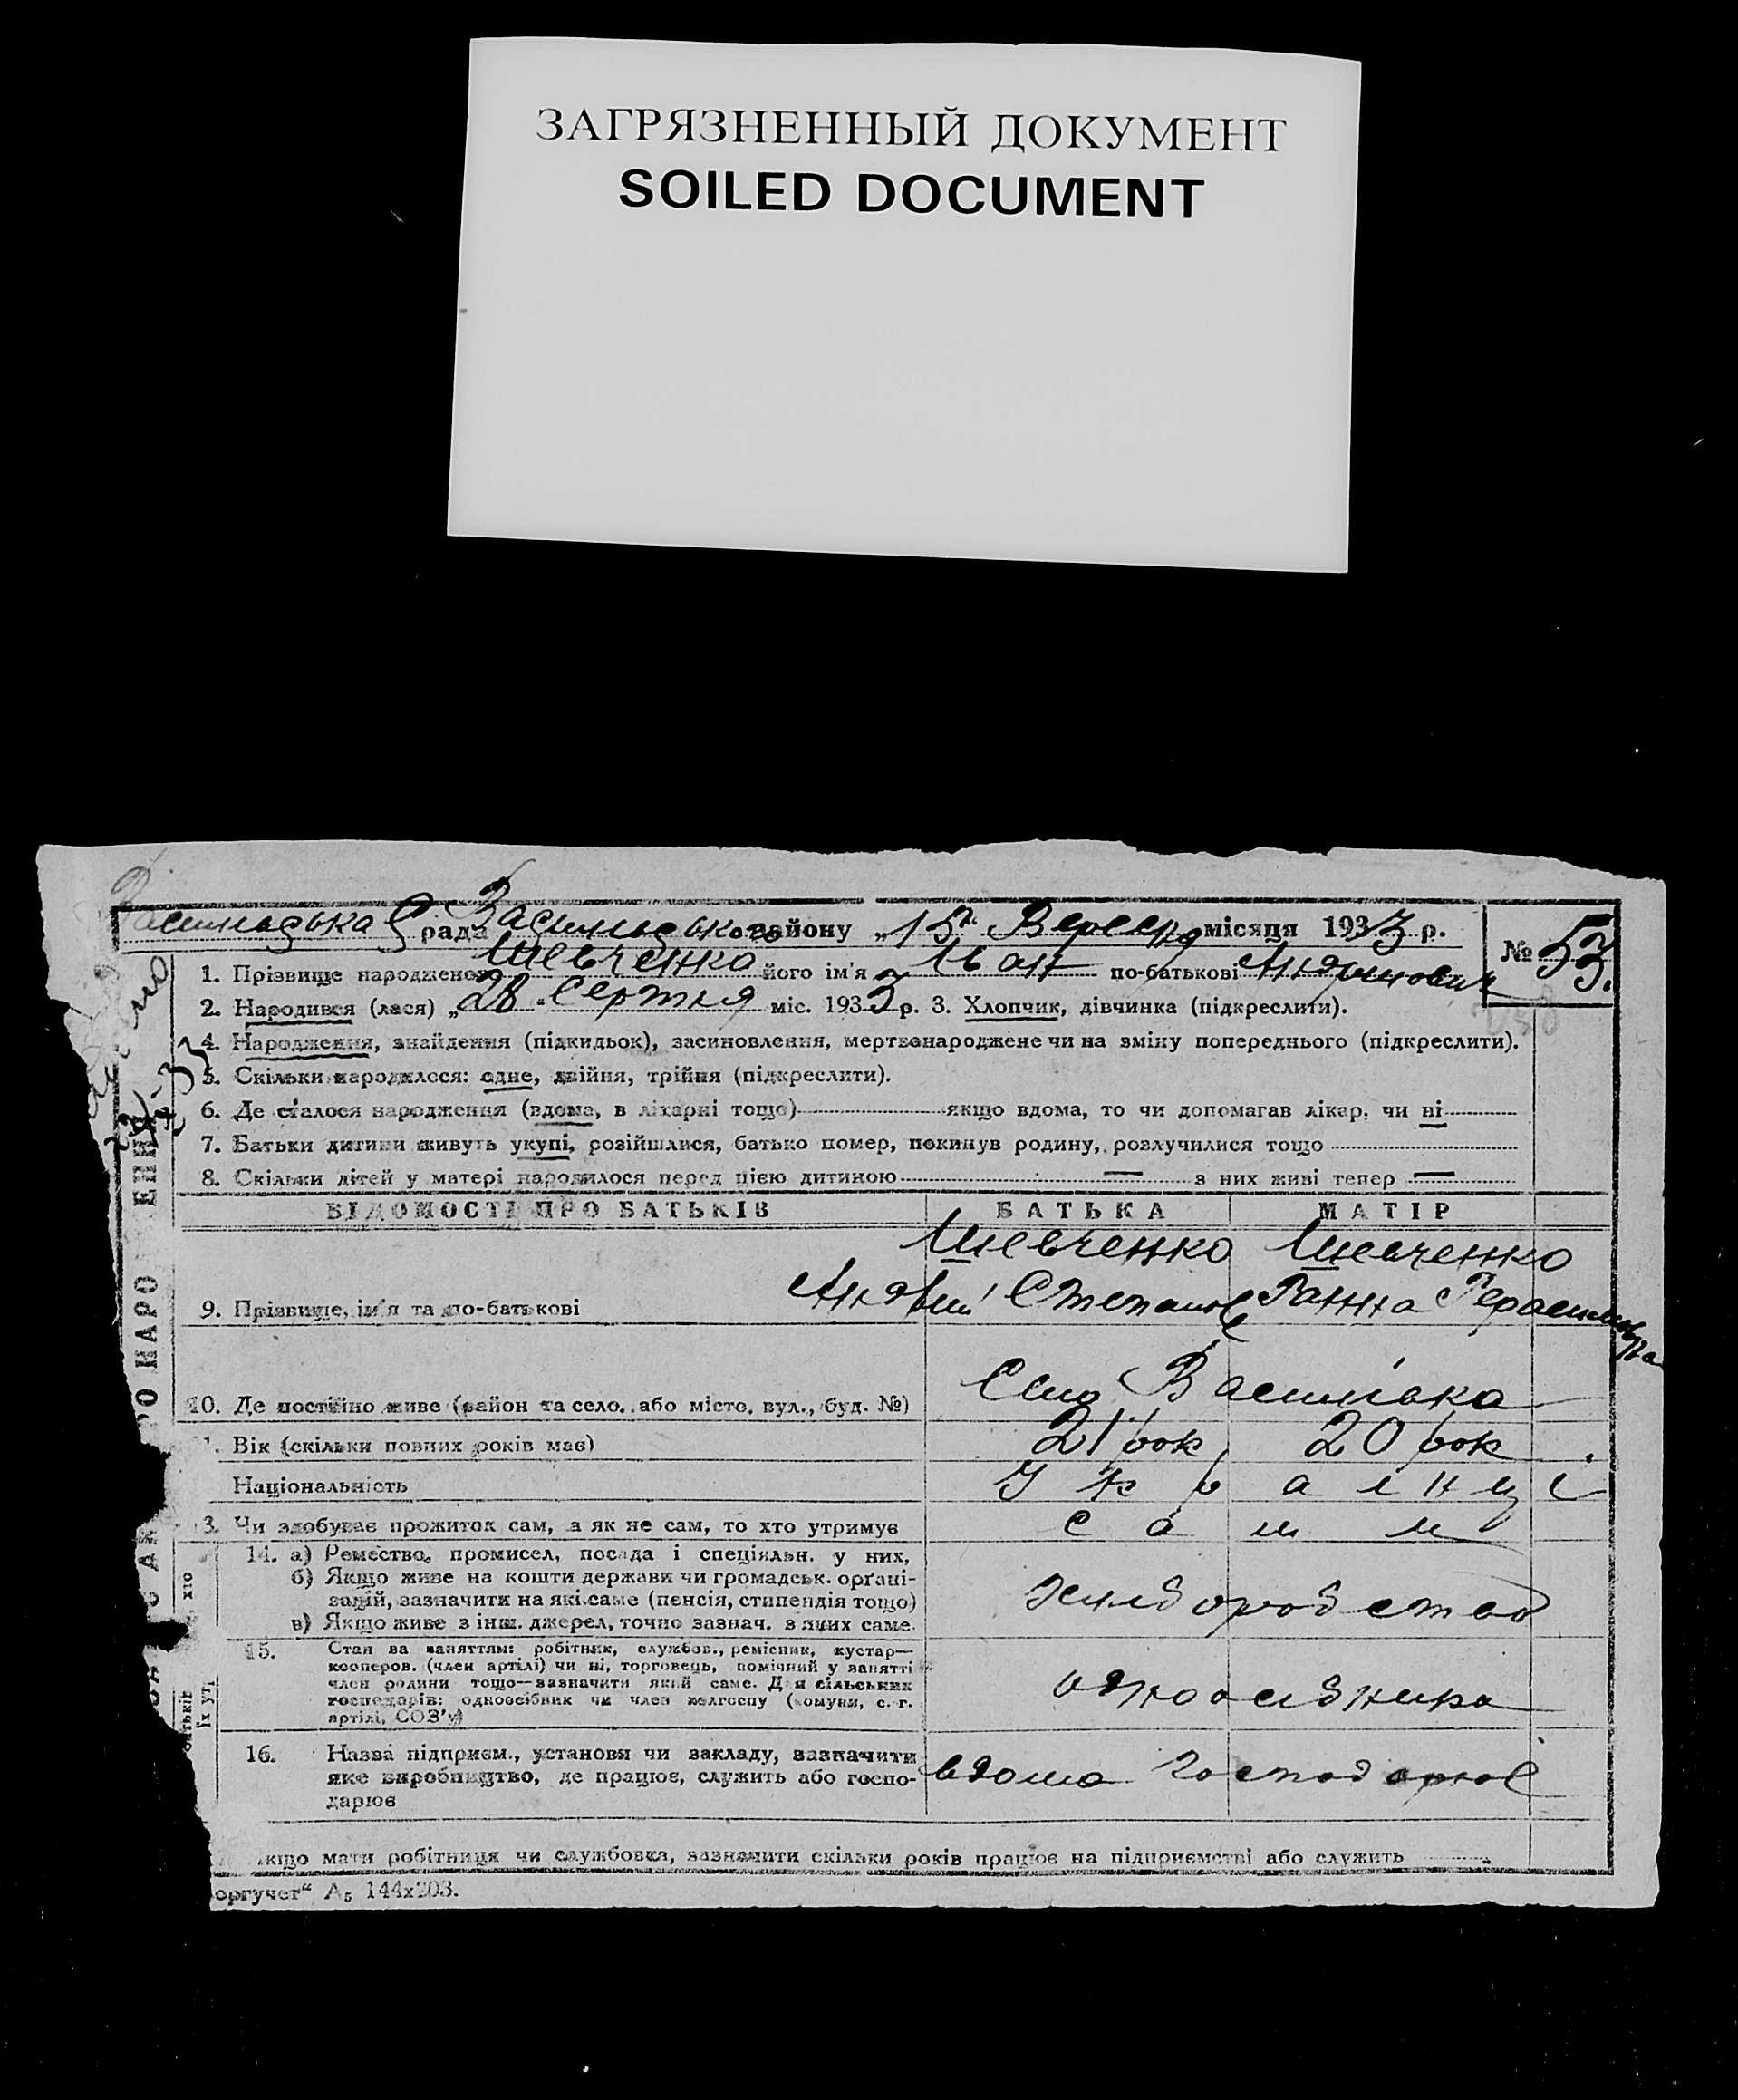 ЗАГРЯЗНЕННЫЙ ДОКУМЕНТ
SOILED DOCUMENT
рада району „15“ Вересня місяця 1933 р. № 53.
1. Прізвище народженого Шевченко його ім'я Іван по-батькові
2. Народився (лася) „28“ Серпня міс. 1933 р. 3. Хлопчик, дівчинка (підкреслити).
4. Народження, знайдення (підкидьок), засиновлення, мертвонароджене чи на зміну попереднього (підкреслити).
5. Скільки народилося: одне, двійня, трійня (підкреслити).
6. Де сталося народження (вдома, в лікарні тощо) якщо вдома, то чи допомагав лікар, чи ні
7. Батьки дитини живуть укупі, розійшлися, батько помер, покинув родину, розлучилися тощо
8. Скільки дітей у матері народилося перед цією дитиною — з них живі тепер —
ВІДОМОСТІ ПРО БАТЬКІВ БАТЬКА МАТІР
Шевченко Шевченко
9. Прізвище, ім'я та по-батькові Степанов Ганна Герасимовна
10. Де постійно живе (район та село, або місто, вул., буд. №) Село Василівка
Вік (скільки повних років має) 21 рок 20 рок
Національність Українці
13. Чи здобуває прожиток сам, а як не сам, то хто утримує сами
14. а) Ремество, промисел, посада і спеціяльн. у них,
б) Якщо живе на кошти держави чи громадськ. орґані-
зацій, зазначити на які саме (пенсія, стипендія тощо)
в) Якщо живе з інш. джерел, точно зазнач. з яких саме.
15. Стан за заняттям: робітник, службов., ремісник, кустар—
кооперов. (член артілі) чи ні, торговець, помічний у занятті
член родини тощо—зазначити який саме. Для сільських
господарів: одноосібник чи член колгоспу (комуни, с.-г.
артілі, СОЗ'у)
16. Назва підприєм., установи чи закладу, зазначити
яке виробництво, де працює, служить або госпо-
дарює вдома господарює
якщо мати робітниця чи службовка, зазначити скільки років працює на підприємстві або служить
оргучет“ А₅ 144х203.